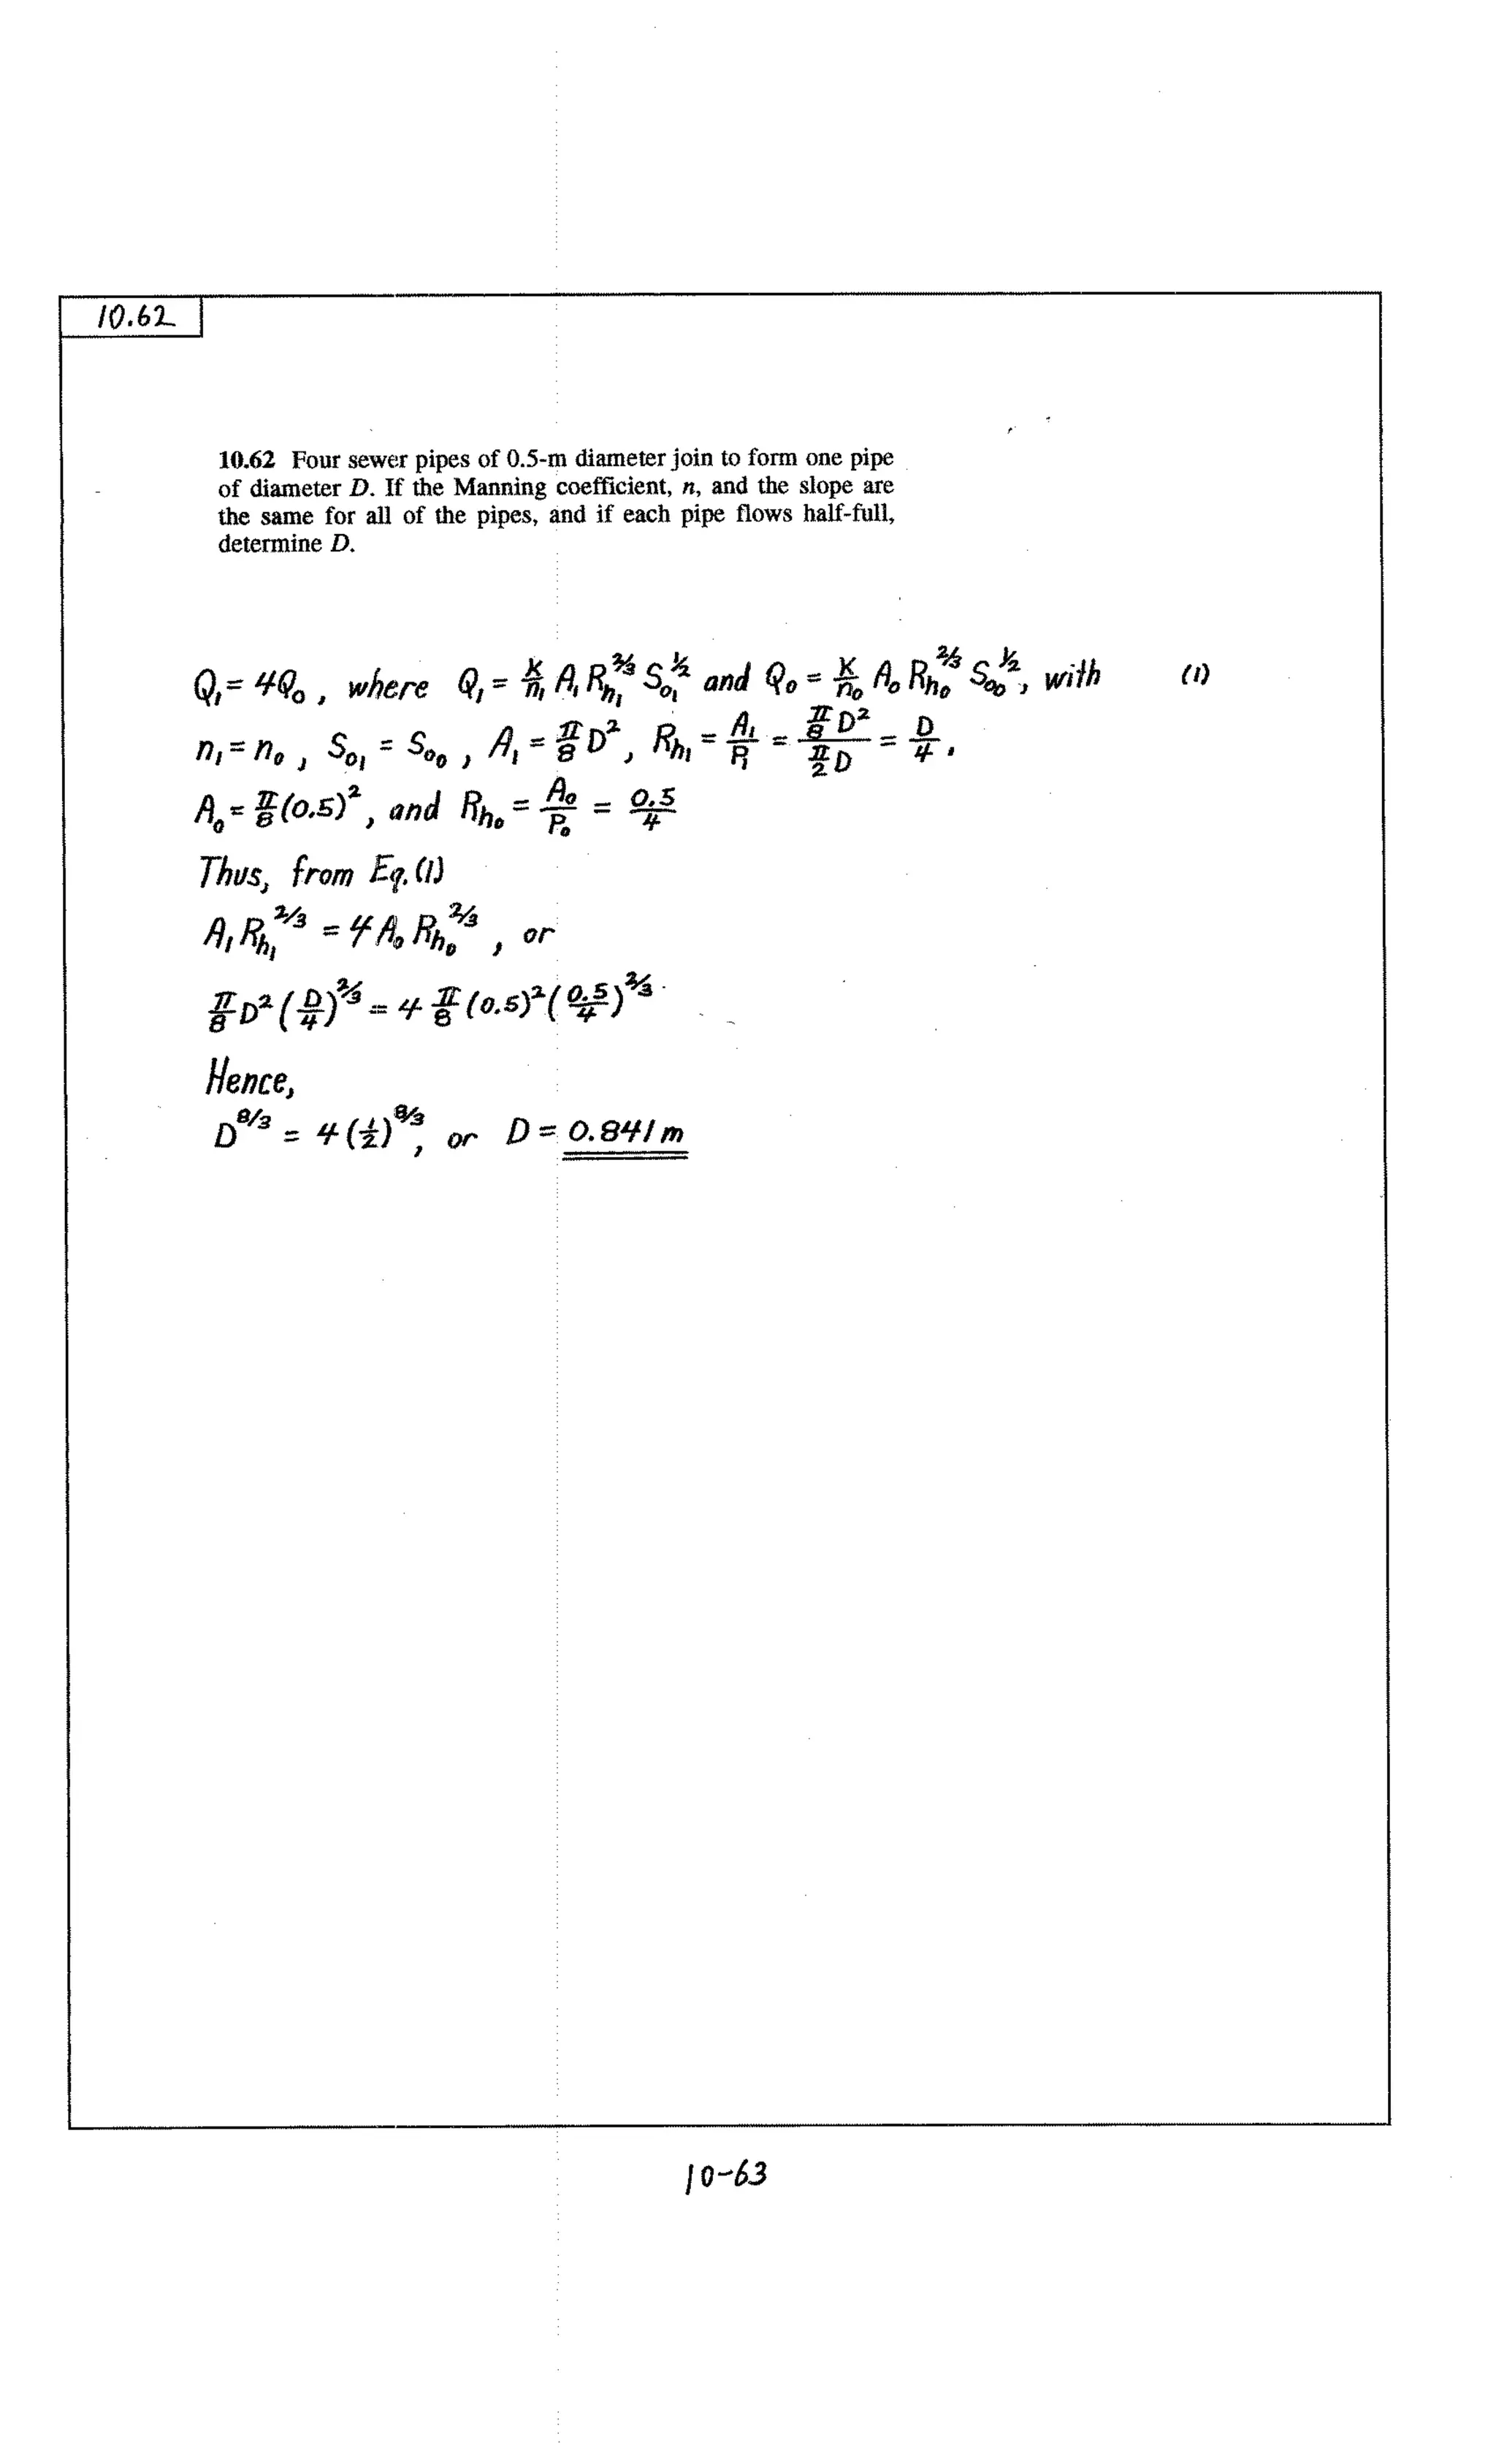 10.62
10.62 Four sewer pipes of 0.5-m diameter join to form one pipe
of diameter D. If the Manning coefficient, n, and the slope are
the same for all of the pipes, and if each pipe flows half-full,
determine D.
Q₁ = 4Q₀, where Q₁ = K/n₁ A₁ R_h₁^2/3 S₀₁^1/2 and Q₀ = K/n₀ A₀ R_h₀^2/3 S₀₀^1/2, with (1)
n₁ = n₀, S₀₁ = S₀₀, A₁ = π/8 D², R_h₁ = A₁/P₁ = (π/8 D²)/(π/2 D) = D/4.
A₀ = π/8 (0.5)², and R_h₀ = A₀/P₀ = 0.5/4
Thus, from Eq. (1)
A₁ R_h₁^2/3 = 4 A₀ R_h₀^2/3, or
π/8 D² (D/4)^2/3 = 4 π/8 (0.5)² (0.5/4)^2/3
Hence,
D^8/3 = 4 (1/2)^8/3, or D = 0.841 m
10-63